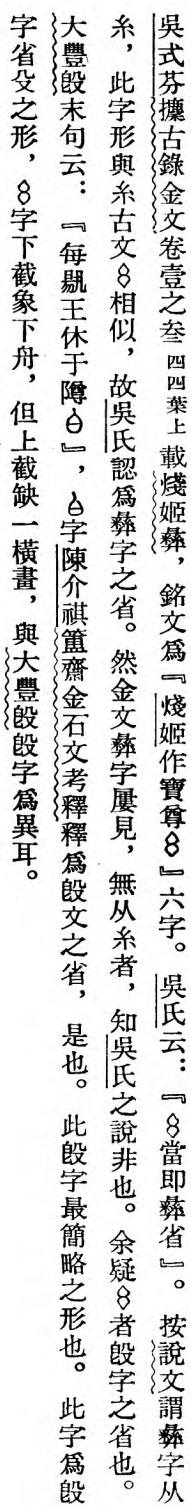 吳式芬攗古錄金文卷壹之叁四四葉上載燹姬彝，銘文爲『燹姬作寶尊8』六字。吳氏云：『8當即彝省』。按說文謂彝字从
糸，此字形與糸古文8相似，故吳氏認爲彝字之省。然金文彝字屢見，無从糸者，知吳氏之說非也。余疑8者𣪘字之省也。
大豐𣪘末句云：『每揚王休于隮』，字陳介祺簠齋金石文考釋釋爲𣪘文之省，是也。此𣪘字最簡略之形也。此字爲𣪘
字省殳之形，8字下截象下舟，但上截缺一橫畫，與大豐𣪘𣪘字爲異耳。